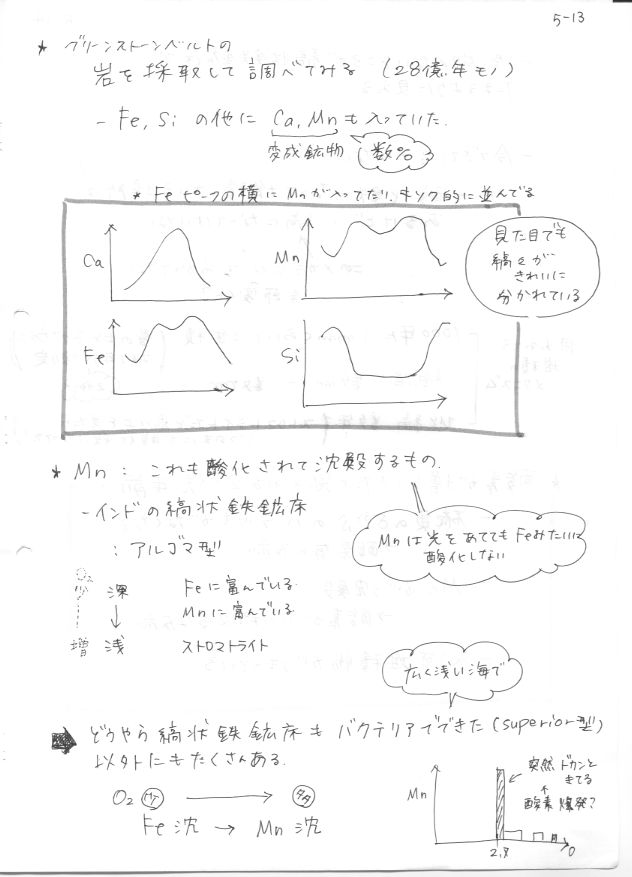 5-13
* グリーンストーンベルトの
岩を採取して調べてみる (28億年モノ)
- Fe, Si の他に Ca, Mnも入っていた.
変成鉱物
数%
* Feピークの横にMnが入ってたり、キソク的に並んでる
Ca
Mn
Fe
Si
見た目でも
縞々が
きれいに
分かれている
* Mn : これも酸化されて沈殿するもの.
- インドの縞状鉄鉱床
: アルゴマ型
Mnは光をあててもFeみたいに
酸化しない
O₂
深 Feに富んでいる
↓ Mnに富んでいる
増 浅 ストロマトライト
広く浅い海で
どうやら縞状鉄鉱床もバクテリアでできた(superior型)
以外にもたくさんある.
O₂ → 
Fe 沈 → Mn 沈
Mn
突然ドカンと
きてる
酸素爆発?
2.8
0